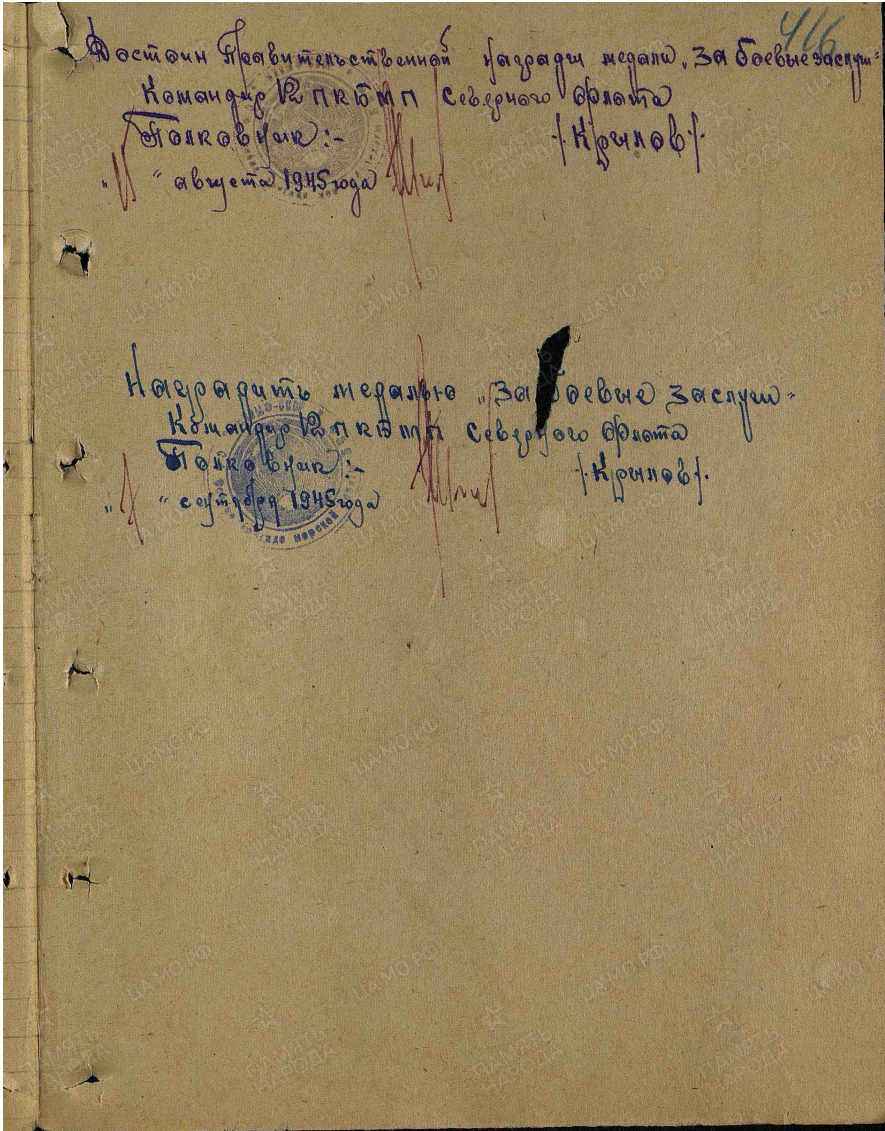 416
Достоин Правительственной награды медали „За боевые заслуги"
Командир 12 ПКБМП Северного Флота
Полковник :- /Крылов/.
" августа 1945 года
Наградить медалью „За боевые заслуги"
Командир 12 ПКБМП Северного Флота
Полковник :- /Крылов/.
„7" сентября 1945 года
морской
ЦАМО.РФ
ПАМЯТЬ
НАРОДА